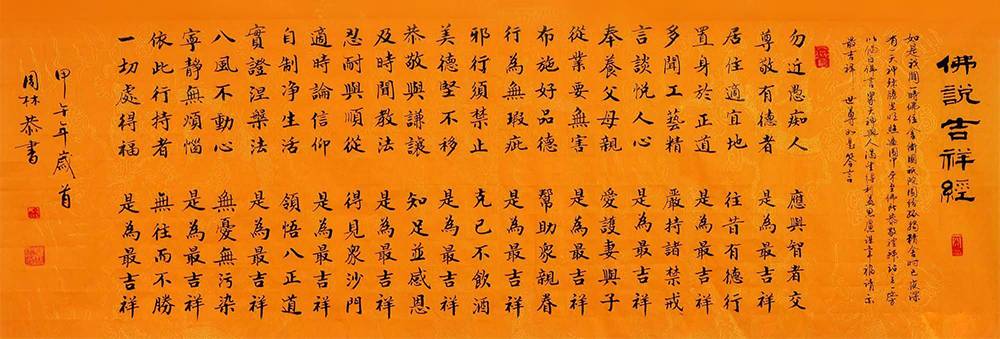 佛說吉祥經
如是我聞一時佛住舍衛國祇陀園給孤獨精舍時已夜深
有一天神殊勝光明遍照園中來至佛所恭敬禮拜站立一旁
以偈白佛言眾天神與人渴望得利益思慮諸幸福請示
最吉祥 世尊如是答言
勿近愚痴人 應與智者交
尊敬有德者 是為最吉祥
居住適宜地 往昔有德行
置身於正道 是為最吉祥
多聞工藝精 嚴持諸禁戒
言談悅人心 是為最吉祥
奉養父母親 愛護妻與子
從業要無害 是為最吉祥
布施好品德 幫助眾親眷
行為無瑕疵 是為最吉祥
邪行須禁止 克己不飲酒
美德堅不移 是為最吉祥
恭敬與謙讓 知足並感恩
及時聞教法 是為最吉祥
忍耐與順從 得見眾沙門
適時論信仰 是為最吉祥
自制淨生活 領悟八正道
實證涅槃法 是為最吉祥
八風不動心 無憂無污染
寧靜無煩惱 是為最吉祥
依此行持者 無往而不勝
一切處得福 是為最吉祥
甲午年歲首
周林恭書